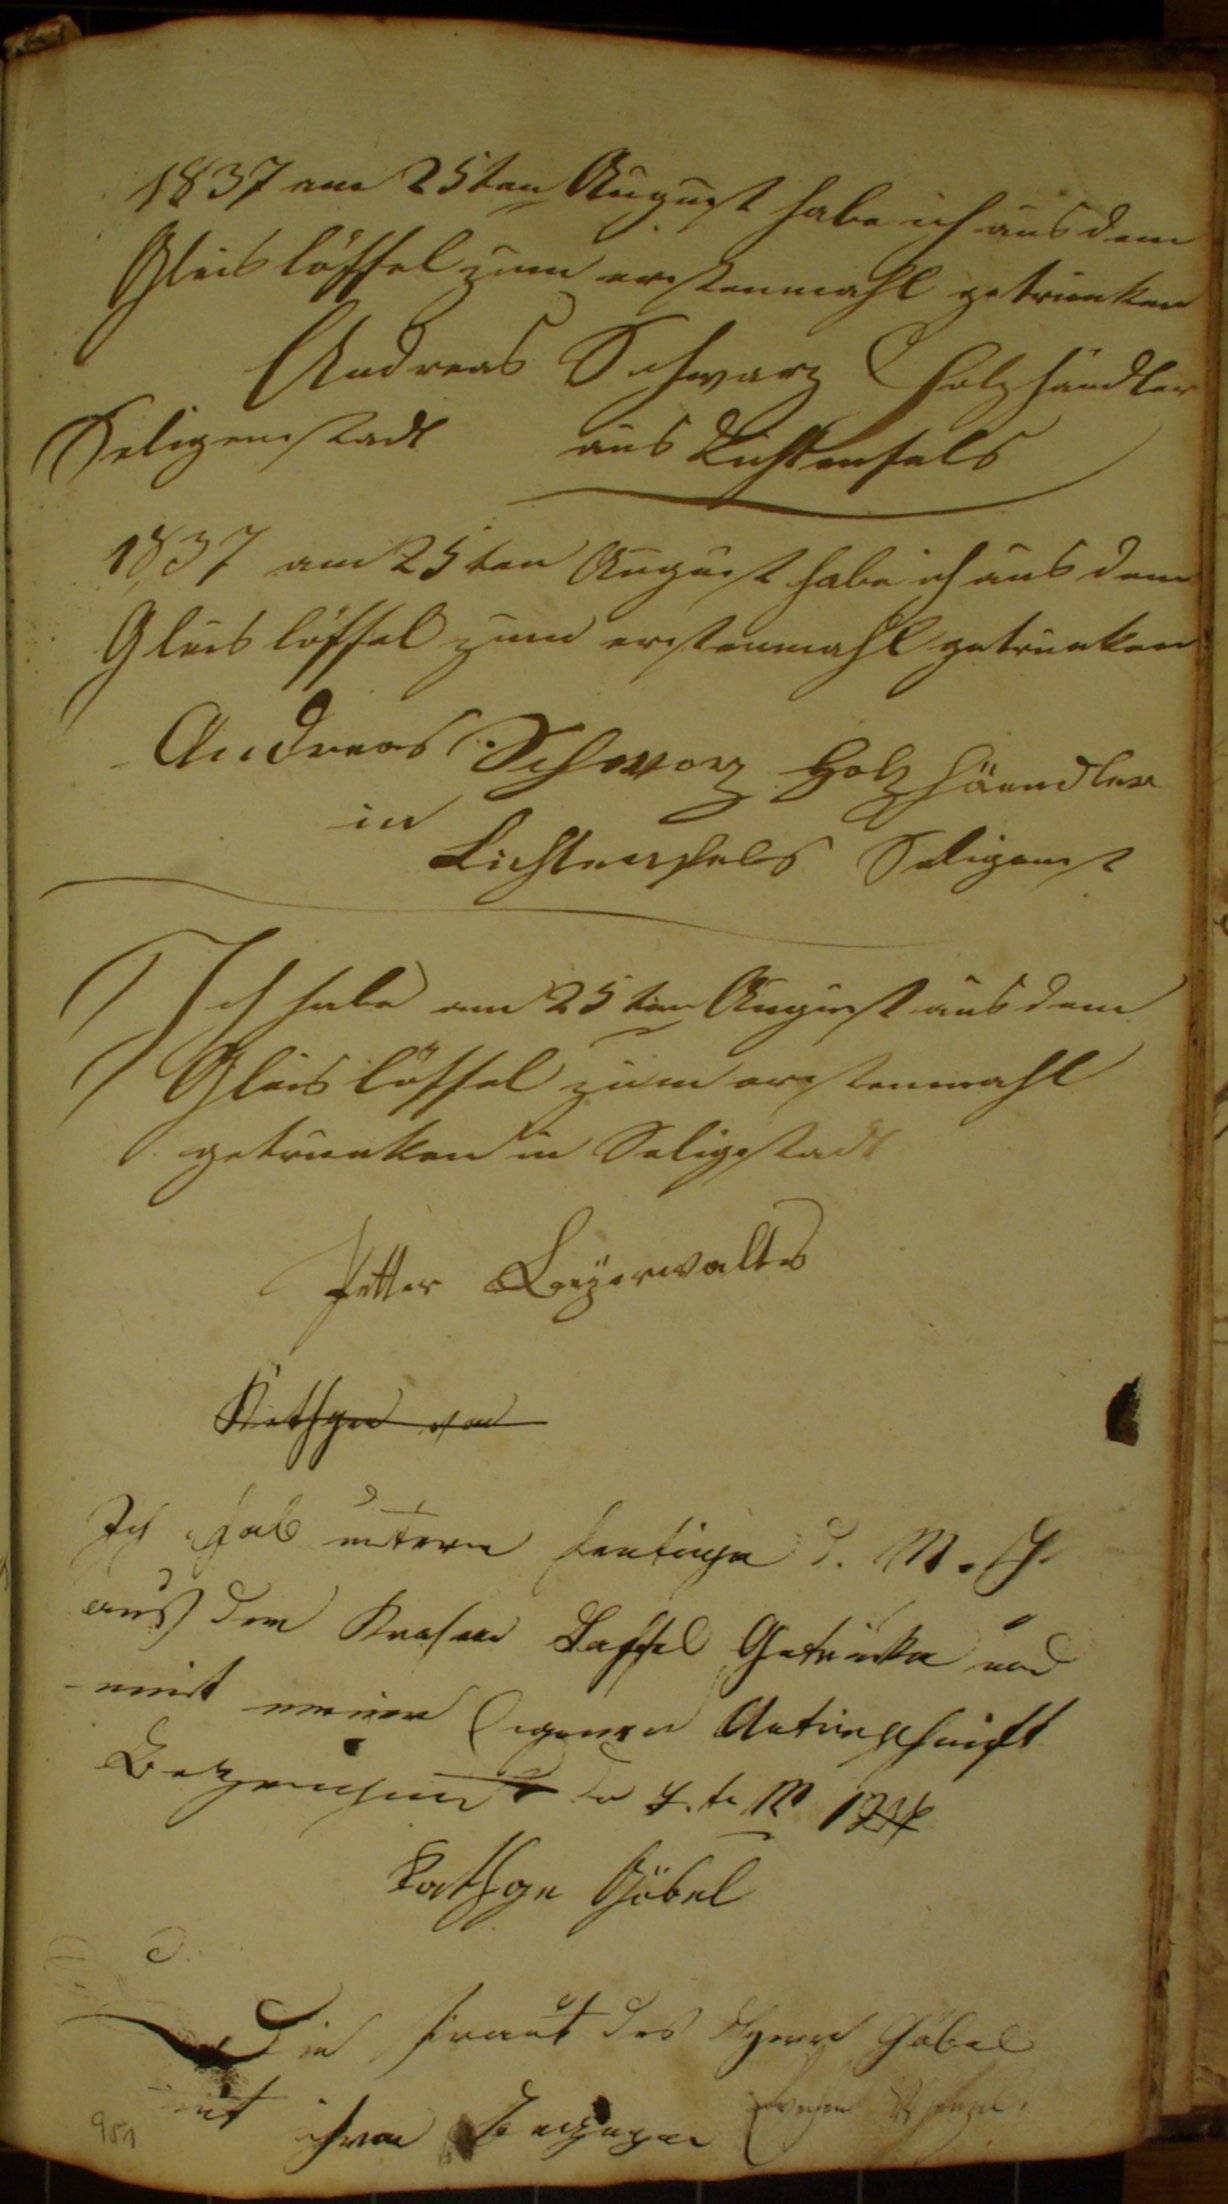 1837 am 25ten August habe ich aus dem
Gleislöffel zum erstenmahl getrunken
Andreas Schwarz Holzhändler
Seligenstadt aus Lichtenfels
1837 am 25ten August habe ich aus dem
Gleislöffel zum erstenmahl getrunken
Andreas Schwarz Holzhäendler
in
Lichtenfels Seligenst
Ich habe am 25ten August aus dem
Gleislöffel zum erstenmahl
getrunken in Seligstadt
Petter Beÿerwaltes
Kethgen von
Ich hab unterm heutigen d. M.
auß dem Löffel Getrunken und
mit meiner Eigenen Unterschrieft
Bezeichnet
Kathgen Göbel
Die Braut des Herrn Göbel
mit ihren
951